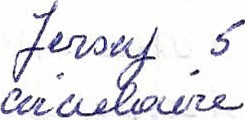 Jersey 5
circulaire